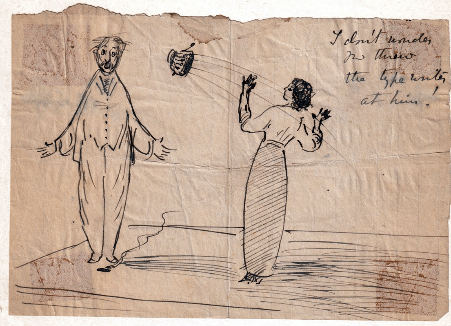 I don't wonder
 threw
the type writer
at him!